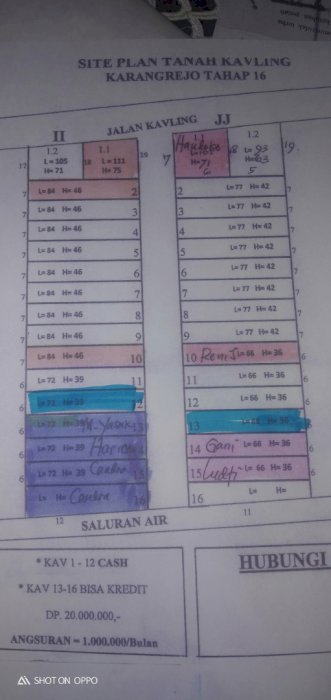 SITE PLAN TANAH KAVLING
KARANGREJO TAHAP 16
II JALAN KAVLING JJ
1.2 1.1
17 L= 105 18 L= 111 19
H= 71 H= 75
7 L= 84 H= 46 2
7 L= 84 H= 46 3
7 L= 84 H= 46 4
7 L= 84 H= 46 5
7 L= 84 H= 46 6
7 L= 84 H= 46 7
7 L= 84 H= 46 8
7 L= 84 H= 46 9
7 L= 84 H= 46 10
6 L= 72 H= 39 11
6 L= 72 H= 39 12
6 L= 72 H= 39 13
6 L= 72 H= 39 14
6 L= 72 H= 39 Candra 15
L= H= Candra 16
12
1.2
7 H= 71 18 L= 93 19.
6 H= 63
5
2 L= 77 H= 42 7
3 L= 77 H= 42 7
4 L= 77 H= 42 7
5 L= 77 H= 42 7
6 L= 77 H= 42 7
7 L= 77 H= 42 7
8 L= 77 H= 42 7
9 L= 77 H= 42 7
10 L= 66 H= 36 6
11 L= 66 H= 36 6
12 L= 66 H= 36 6
13 L= 66 H= 36
14 Gani L= 66 H= 36 6
15 L= 66 H= 36 6
16 L= H=
11
SALURAN AIR
* KAV 1 - 12 CASH
* KAV 13-16 BISA KREDIT
DP. 20.000.000,-
ANGSURAN = 1.000.000/Bulan
HUBUNGI
SHOT ON OPPO